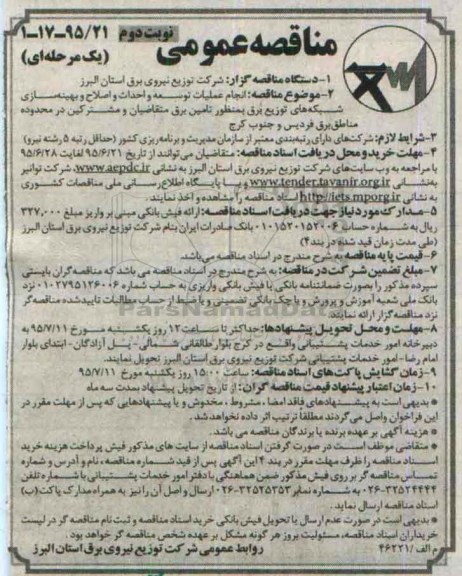 مناقصه عمومی
نوبت دوم
۱-۱۷-۹۵/۲۱
(یک مرحله‌ای)
۱-دستگاه مناقصه گزار: شرکت توزیع نیروی برق استان البرز
۲-موضوع مناقصه: انجام عملیات توسعه و احداث و اصلاح و بهینه‌سازی
شبکه‌های توزیع برق بمنظور تامین برق متقاضیان و مشترکین در محدوده
مناطق برق فردیس و جنوب کرج
۳-شرایط لازم: شرکت‌های دارای رتبه‌بندی معتبر از سازمان مدیریت و برنامه‌ریزی کشور (حداقل رتبه ۵ رشته نیرو)
۴-مهلت خرید و محل دریافت اسناد مناقصه: متقاضیان می‌توانند از تاریخ ۹۵/۶/۲۱ لغایت ۹۵/۶/۲۸
با مراجعه به وب سایت‌های شرکت توزیع نیروی برق استان البرز به نشانی www.aepdc.ir، شرکت توانیر
به‌نشانی www.tender.tavanir.org.ir و یا پایگاه اطلاع‌رسانی ملی مناقصات کشوری
به نشانی http://iets.mporg.ir اسناد مناقصه را مشاهده و اخذ نمایند.
۵-مدارک مورد نیاز جهت دریافت اسناد مناقصه: ارائه فیش بانکی مبنی بر واریز مبلغ ۳۲۷,۰۰۰
ریال به شماره حساب ۰۱۰۱۵۲۰۱۵۲۰۰۶ بانک صادرات ایران بنام شرکت توزیع نیروی برق استان البرز
(طی مدت زمان قید شده در بند۴)
۶-قیمت پایه مناقصه به شرح مندرج در اسناد مناقصه می‌باشد.
۷-مبلغ تضمین شرکت در مناقصه: به شرح مندرج در اسناد مناقصه می باشد که مناقصه‌گران بایستی
سپرده مذکور را بصورت ضمانتنامه بانکی یا فیش بانکی واریزی به حساب شماره ۰۱۰۲۷۹۵۱۲۶۰۰۶ نزد
بانک ملی شعبه آموزش و پرورش و یا چک بانکی تضمینی و یا ضبط از حساب مطالبات تاییدشده مناقصه‌گر
نزد مناقصه‌گزار ارائه نمایند.
۸-مهلت و محل تحویل پیشنهادها: حداکثر تا ساعت ۱۲ روز یکشنبه مورخ ۹۵/۷/۱۱ به
دبیرخانه امور خدمات پشتیبانی واقع در کرج بلوار طالقانی شمالی-پل آزادگان-ابتدای بلوار
امام رضا-امور خدمات پشتیبانی شرکت توزیع نیروی برق استان البرز تحویل نمایند.
۹-زمان گشایش پاکت‌های اسناد مناقصه: ساعت ۱۵:۰۰ روز یکشنبه مورخ ۹۵/۷/۱۱
۱۰-زمان اعتبار پیشنهاد قیمت مناقصه گران: از تاریخ تحویل پیشنهاد بمدت سه ماه
* بدیهی است به پیشنهادهای فاقد امضا، مشروط، مخدوش و یا پیشنهادهایی که پس از مهلت مقرر در
این فراخوان واصل می‌گردند مطلقا ترتیب اثر داده نخواهد شد.
* هزینه آگهی بر عهده برنده یا برندگان مناقصه می باشد.
* متقاضی موظف است در صورت گرفتن اسناد مناقصه از سایت های مذکور فیش پرداخت هزینه خرید
اسناد مناقصه را ظرف مهلت مقرر در بند ۴ این آگهی پس از قید شماره مناقصه، نام و آدرس و شماره
تماس مناقصه گر بر روی فیش مذکور ضمن هماهنگی با دفتر امور خدمات پشتیبانی با شماره تلفن
۰۲۶-۳۲۵۲۴۴۴۴ به شماره نمابر ۰۲۶-۳۲۵۲۵۳۵۳ ارسال و اصل آن را نیز به همراه مدارک پاکت(ب)
اسناد مناقصه ارسال نماید.
* بدیهی است در صورت عدم ارسال یا تحویل فیش بانکی خرید اسناد مناقصه و ثبت نام مناقصه گر در لیست
خریداران اسناد مناقصه، مسئولیت بروز هر گونه مشکل بر عهده شخص مناقصه گر خواهد بود.
م الف /۴۶۲۲۱
روابط عمومی شرکت توزیع نیروی برق استان البرز
ParsNamadData